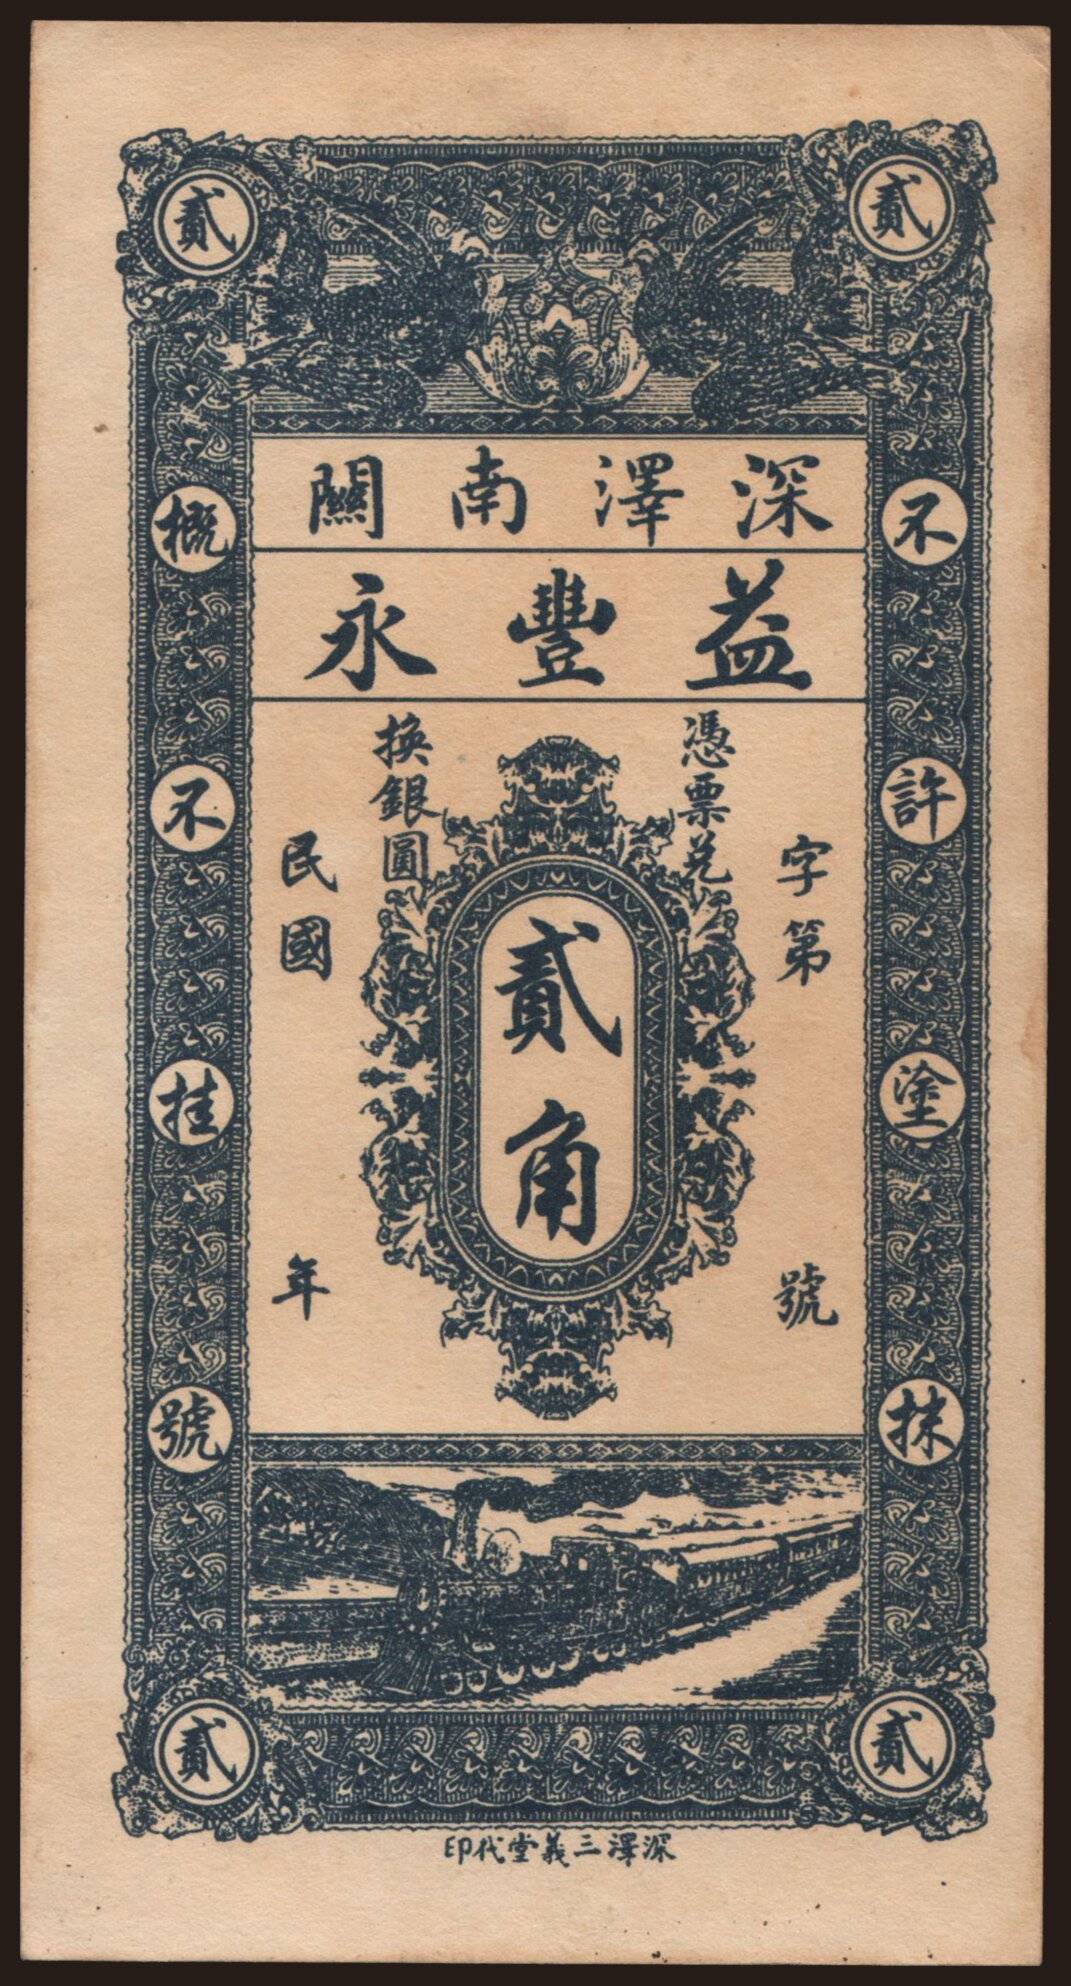 貳 貳
深澤南關
益豐永
憑票兌
換銀圓
字第 號
貳角
民國 年
不許塗抹
概不挂號
貳 貳
深澤三義堂代印